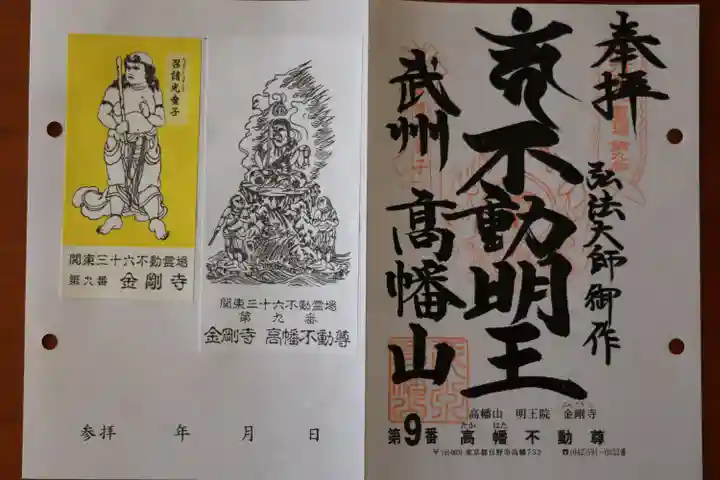 召請光童子
関東三十六不動霊場
第九番 金剛寺
関東三十六不動霊場
第九番
金剛寺 高幡不動尊
参拝 年 月 日
奉拝
弘法大師御作
不動明王
武州 高幡山
高幡山 明王院 金剛寺
第9番 高幡不動尊
東京都日野市高幡733